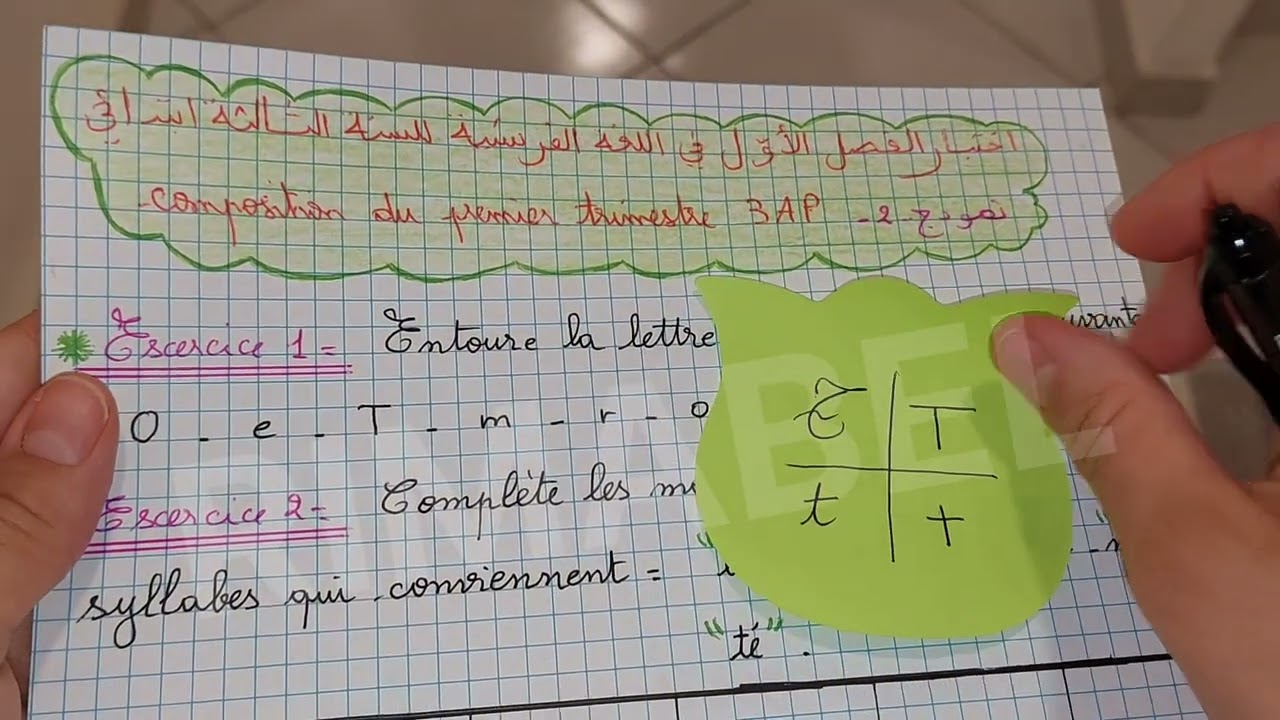 اختبار الفصل الأول في اللغة الفرنسية للسنة الثالثة ابتدائي
composition du premier trimestre 3AP - نموذج 2 -
Exercice 1 = Entoure la lettre
O - e - T - m - r - o
Exercice 2 = Complète les
syllabes qui conviennent =
"té".
T T
t t
RIMABEL